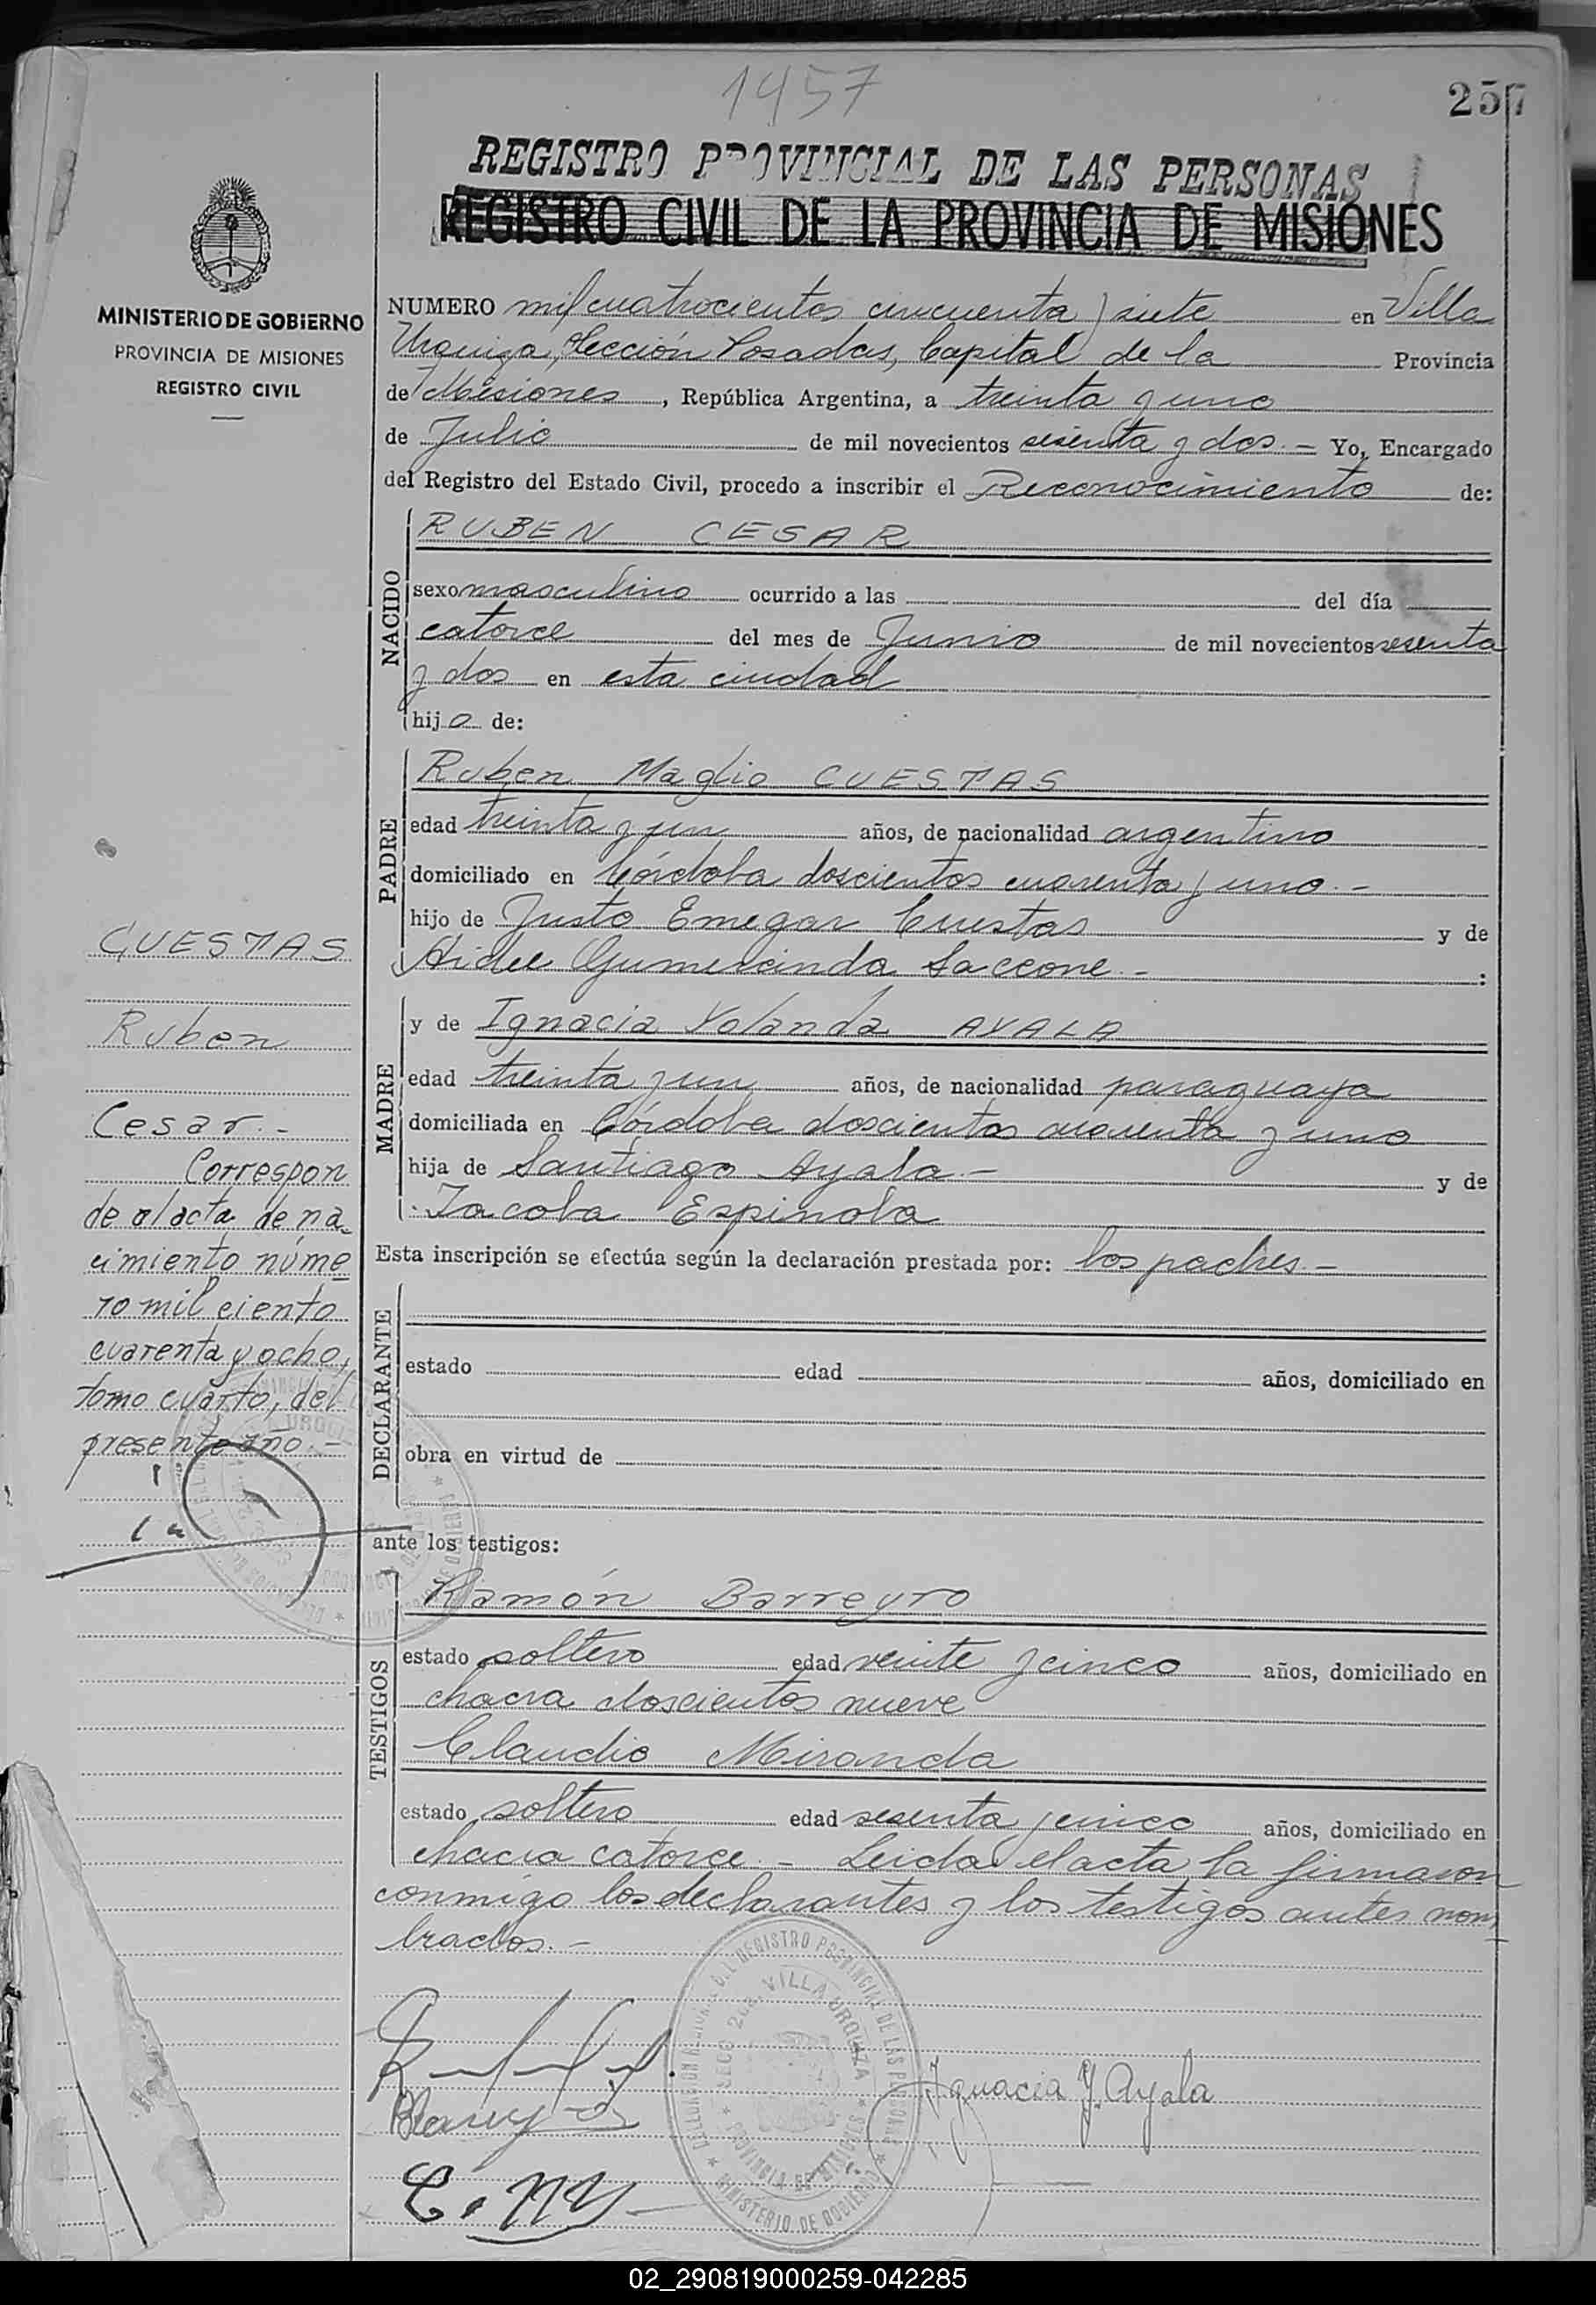 1457
257
REGISTRO PROVINCIAL DE LAS PERSONAS
REGISTRO CIVIL DE LA PROVINCIA DE MISIONES
MINISTERIO DE GOBIERNO
PROVINCIA DE MISIONES
REGISTRO CIVIL
NUMERO mil cuatrocientos cincuenta y siete en Villa
Urquiza, Sección Posadas, Capital de la Provincia
de Misiones, República Argentina, a treinta y uno
de Julio de mil novecientos sesenta y dos.- Yo, Encargado
del Registro del Estado Civil, procedo a inscribir el Reconocimiento de:
NACIDO
RUBEN CESAR
sexo masculino ocurrido a las del día
catorce del mes de Junio de mil novecientos sesenta
y dos en esta ciudad
hijo de:
PADRE
Ruben Maglio CUESTAS
edad treinta y un años, de nacionalidad argentino
domiciliado en Córdoba doscientos cuarenta y uno.-
hijo de Justo Emegar Cuestas y de
Aidee Gumescinda Saccone.- :
MADRE
y de Ignacia Yolanda AYALA
edad treinta y un años, de nacionalidad paraguaya
domiciliada en Córdoba doscientos cuarenta y uno
hija de Santiago Ayala.- y de
Jacoba Espinola
Esta inscripción se efectúa según la declaración prestada por: los padres.-
DECLARANTE
estado edad años, domiciliado en
obra en virtud de
ante los testigos:
TESTIGOS
Ramón Barreyro
estado soltero edad veinte y cinco años, domiciliado en
chacra doscientos nueve
Claudio Miranda
estado soltero edad sesenta y cinco años, domiciliado en
chacra catorce.- Leida el acta la firmaron
conmigo los declarantes y los testigos antes nom
brados.-
CUESTAS
Ruben
Cesar.-
Correspon
de al acta de na-
cimiento núme
ro mil ciento
cuarenta y ocho,
tomo cuarto, del
presente año.-
Ignacia Y. Ayala
REGISTRO PROVINCIAL DE LAS PERSONAS
VILLA URQUIZA
PROVINCIA DE MISIONES
MINISTERIO DE GOBIERNO
02_290819000259-042285